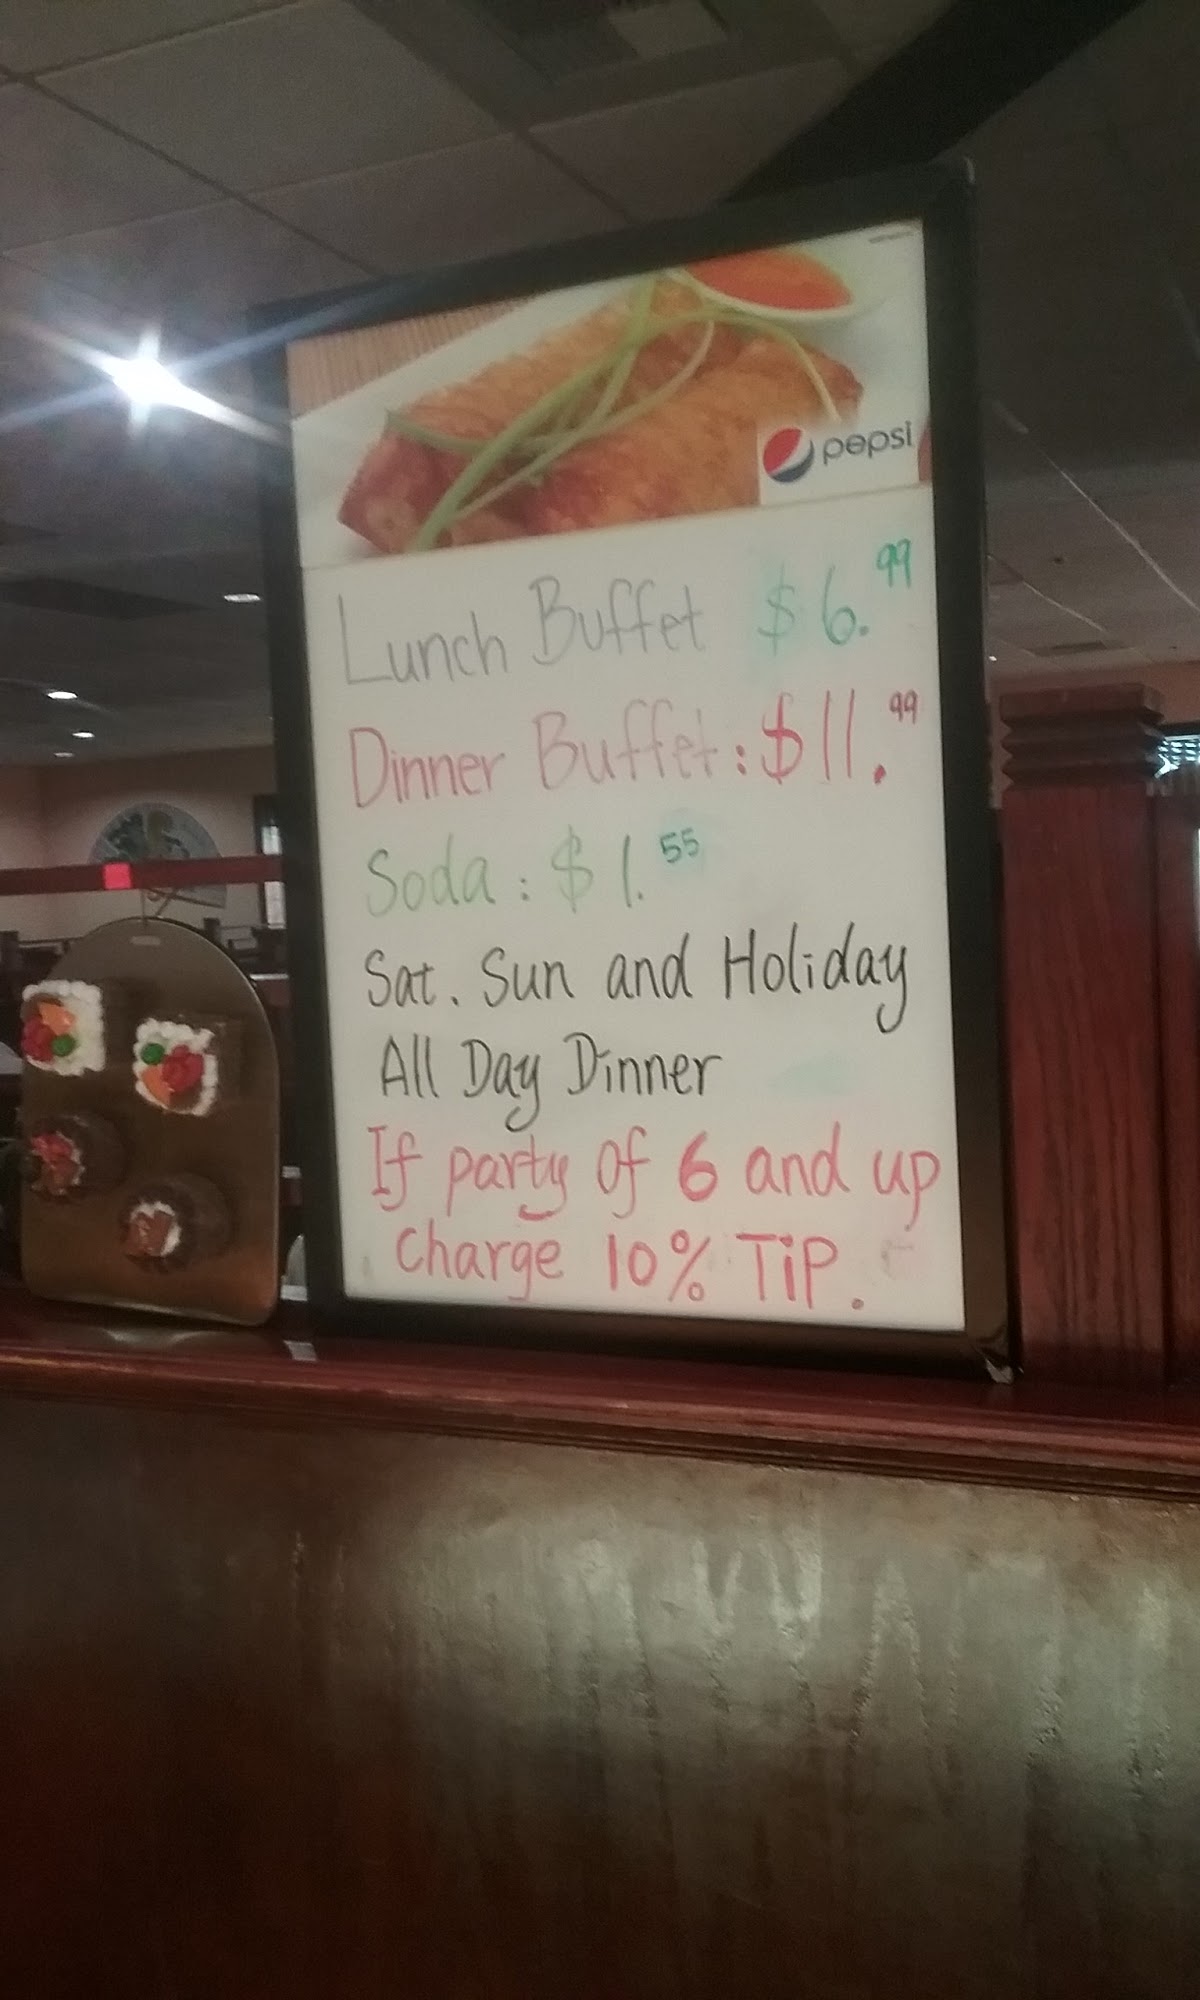 pepsi
Lunch Buffet $6.99
Dinner Buffet: $11.99
Soda: $1.55
Sat. Sun and Holiday
All Day Dinner
If party of 6 and up
charge 10% TiP.